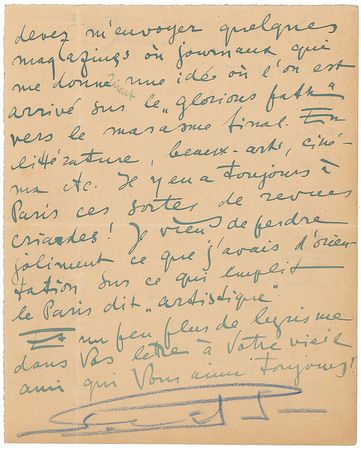 devez m'envoyer quelques
magazines où journaux qui
me donnent une idée où l'on est
arrivé sur le „glorious path"
vers le marasme final. En
littérature, beaux-arts, ciné-
ma etc. Il y en a toujours à
Paris ces sortes de revues
criardes! Je viens de perdre
joliment ce que j'avais d'orien-
tation sur ce qui emplit
le Paris dit „artistique"
Et un peu plus de lyrisme
dans Vos lettre à Votre vieil
ami qui Vous aime toujours!